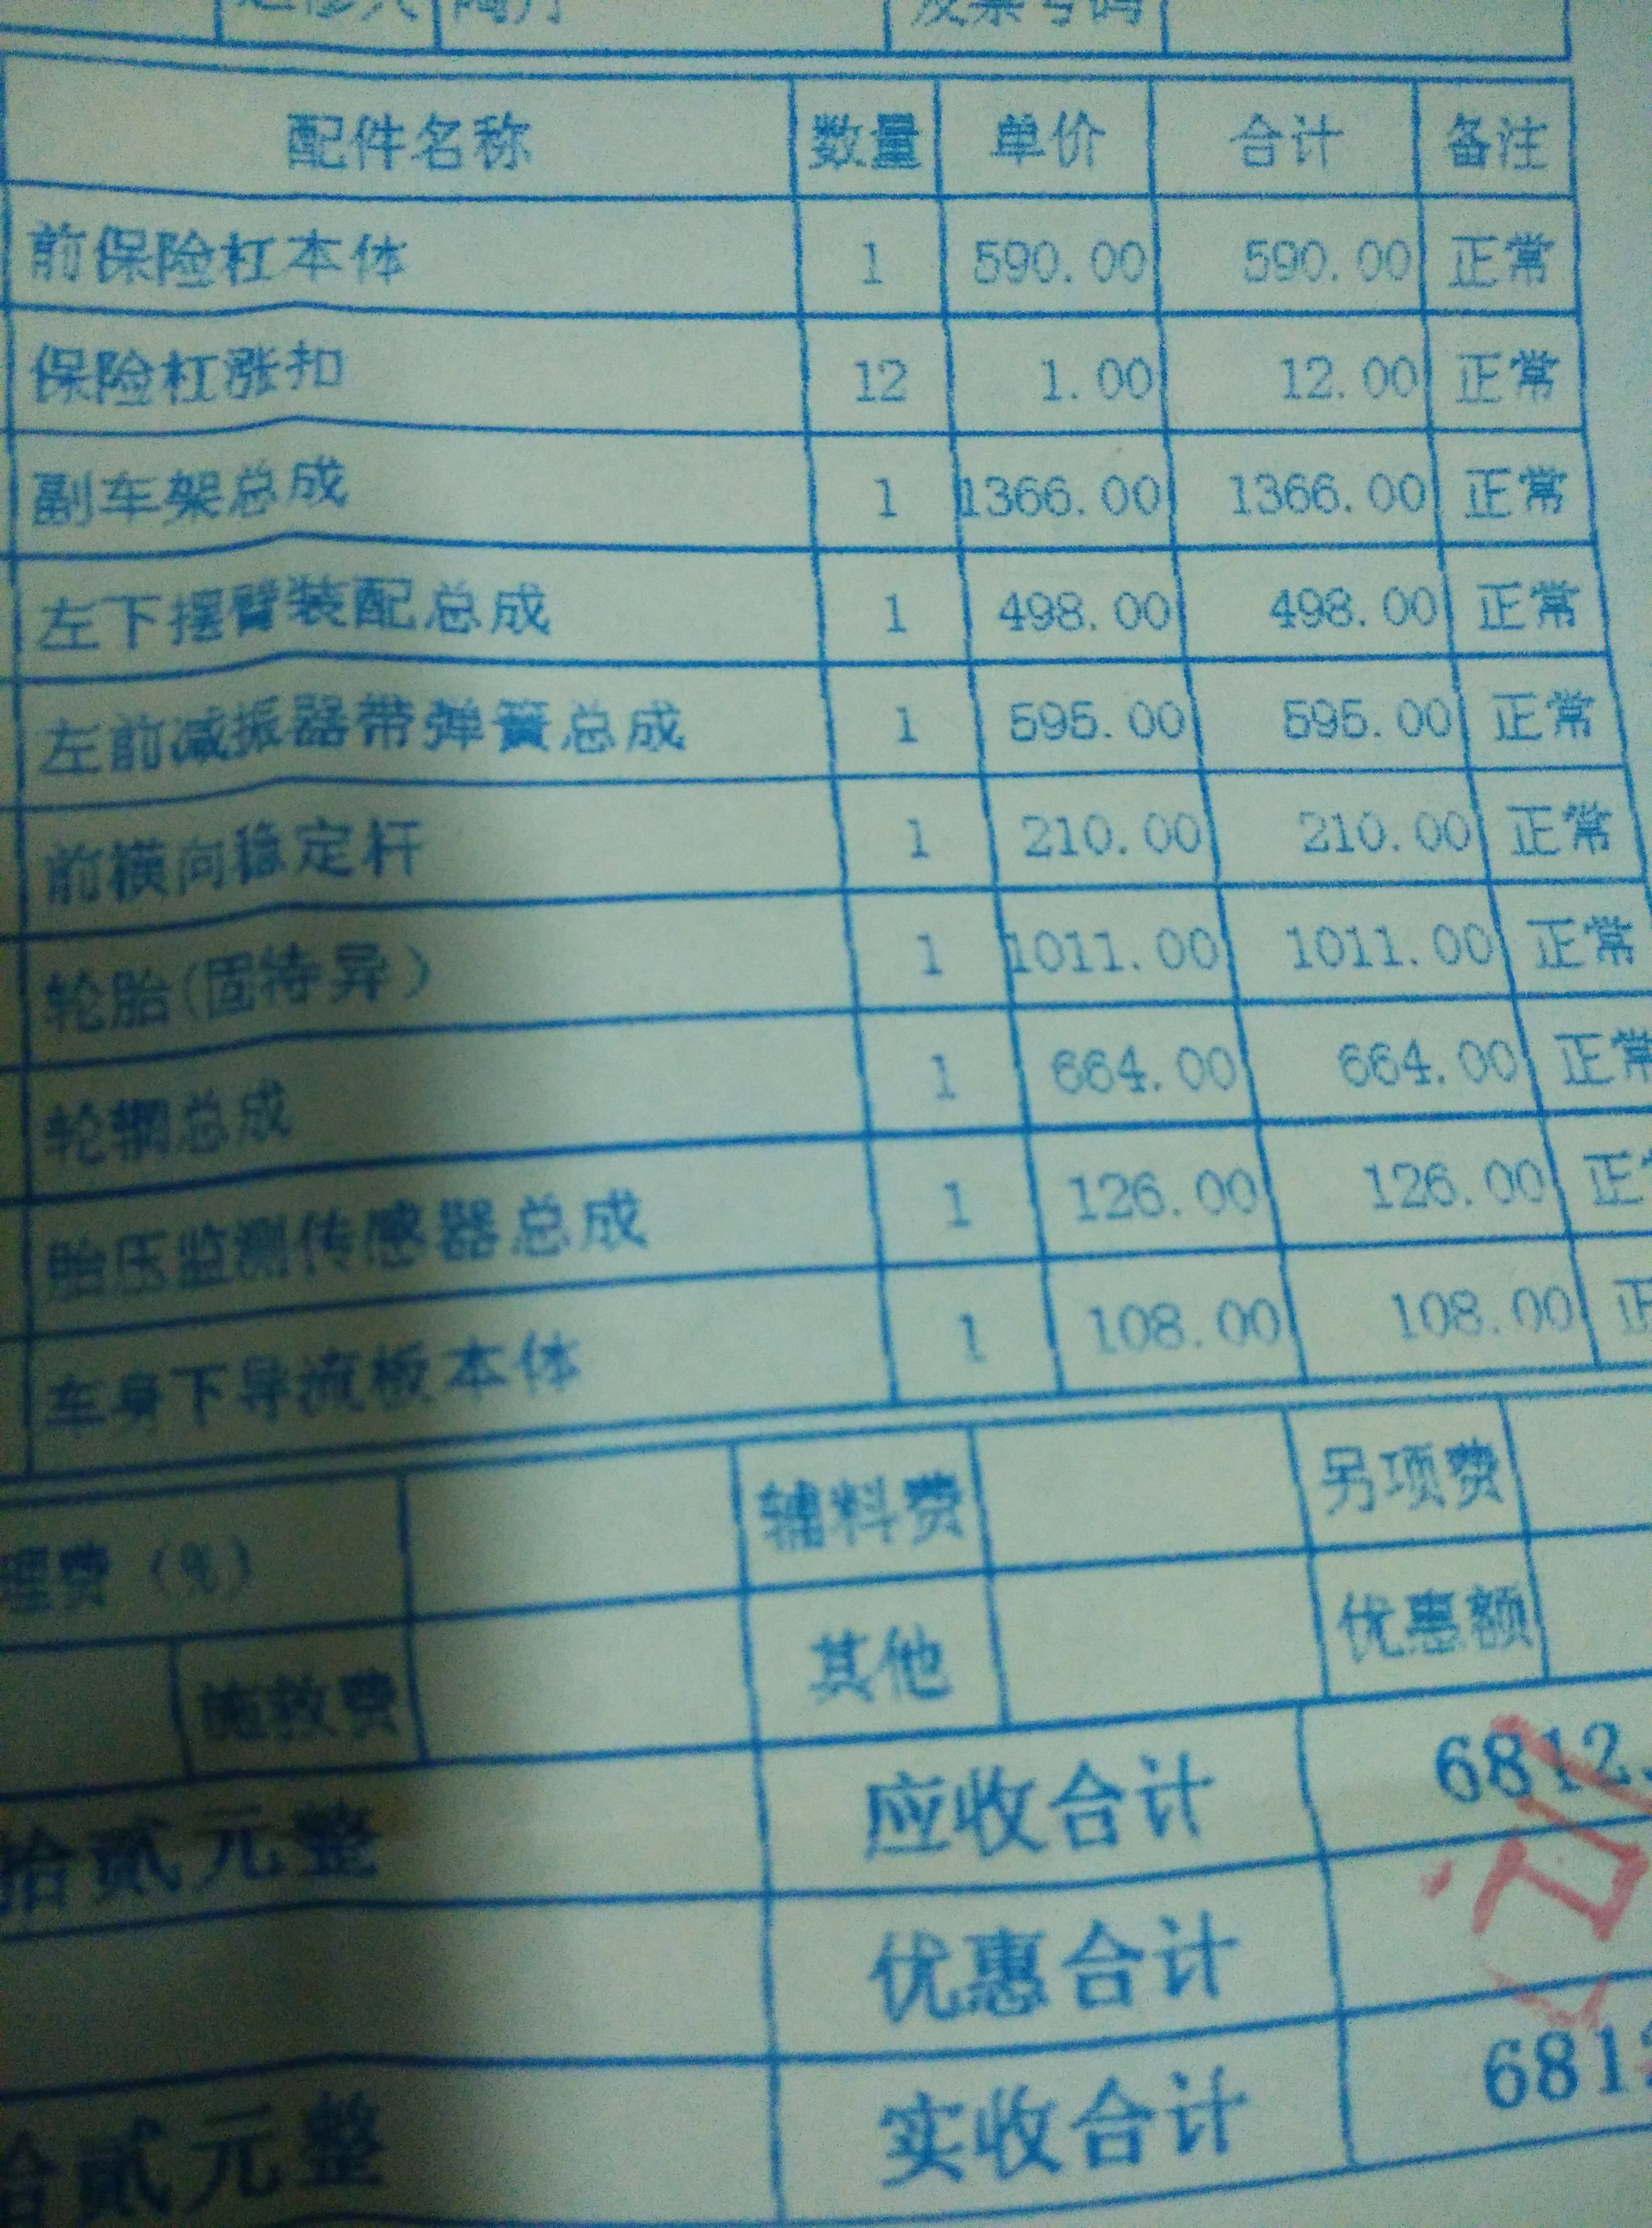 发票号码
配件名称 数量 单价 合计 备注
前保险杠本体 1 590.00 590.00 正常
保险杠涨扣 12 1.00 12.00 正常
副车架总成 1 1366.00 1366.00 正常
左下摆臂装配总成 1 498.00 498.00 正常
左前减振器带弹簧总成 1 595.00 595.00 正常
前横向稳定杆 1 210.00 210.00 正常
轮胎(固特异) 1 1011.00 1011.00 正常
轮辋总成 1 664.00 664.00 正常
胎压监测传感器总成 1 126.00 126.00 正常
车身下导流板本体 1 108.00 108.00 正
理费(%) 辅料费 另项费
施救费 其他 优惠额
拾贰元整 应收合计 6812.
优惠合计
拾贰元整 实收合计 681